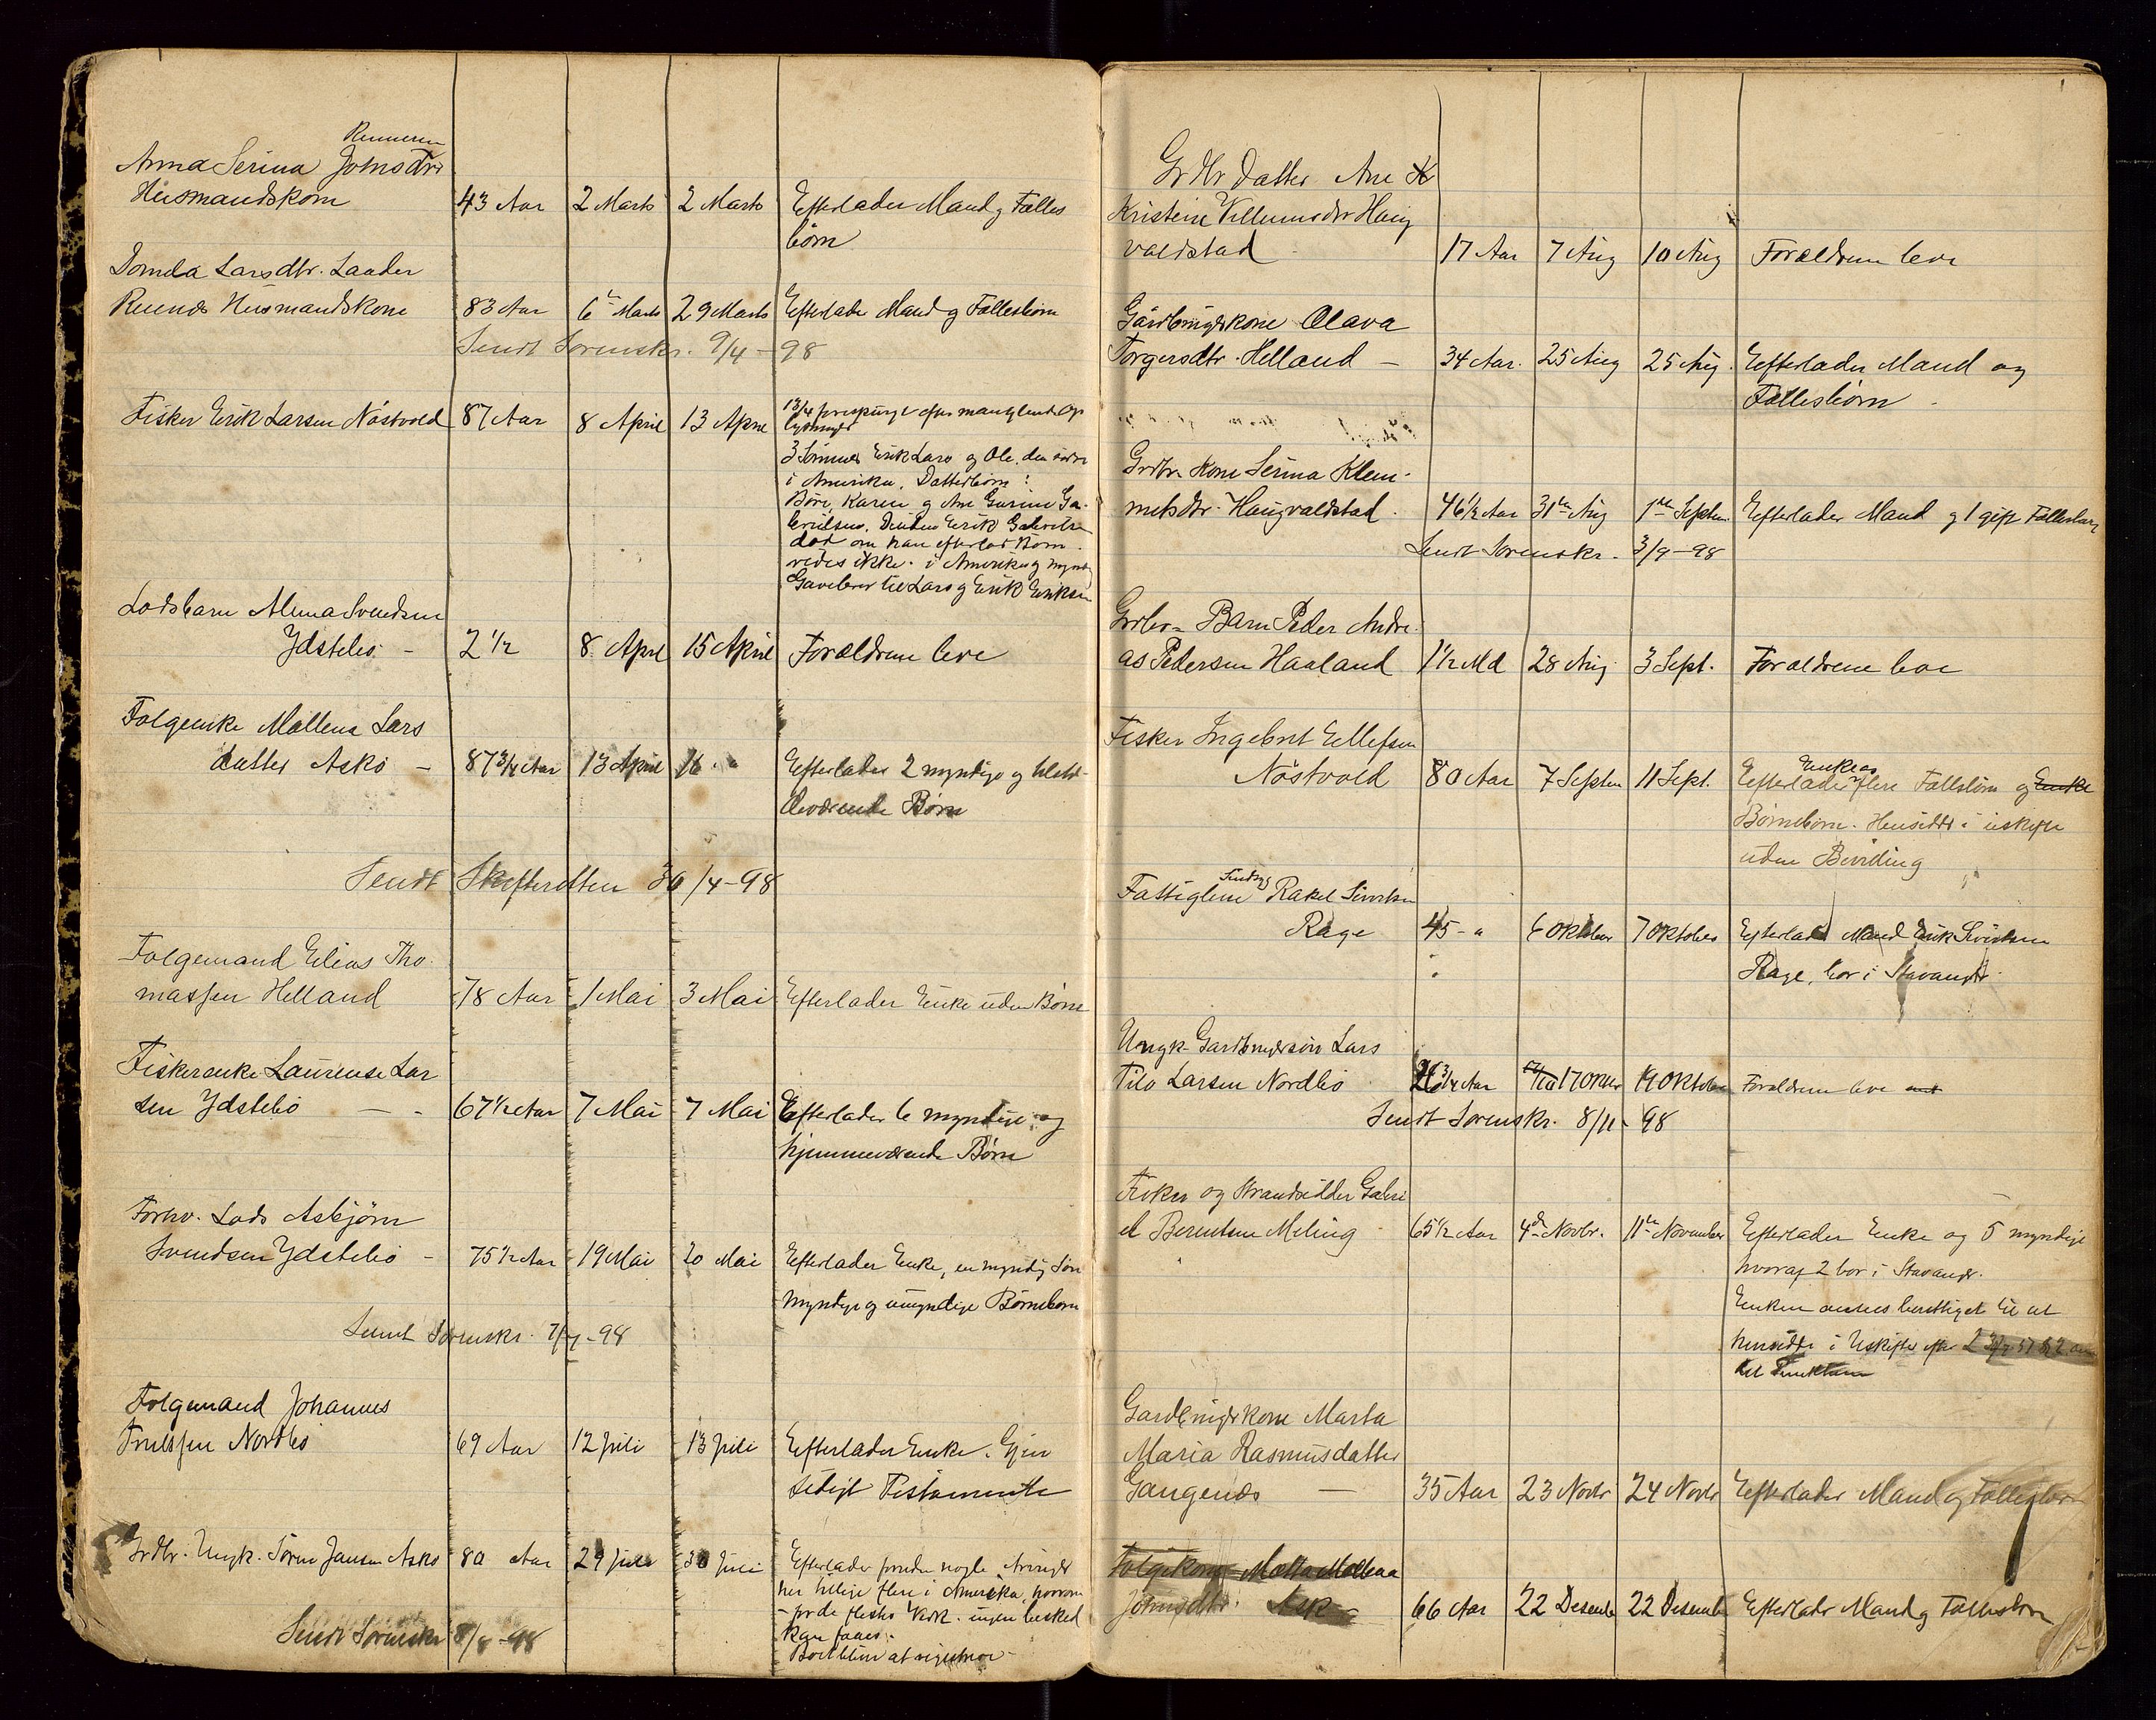 Anna Serina Johnsdtr
Husmandskone 43 Aar 2 Marts 2 Marts Efterlader Mand og Fælles
børn
Larsdtr. Lauder
Husmandskone 83 Aar 6te Marts 29 Marts Efterlader Mand og Fællesbørn
Sendt Sorenskr. 9/4-98
Fisker Erik Larsen Nöstvold 87 Aar 8 April 13 April 13/4 forespurgt efter manglende Op
lysninger
3 Sönner Erik Lars og Ole, den
i Amerika. Datterbørn:
Karen og Ane Gurine Ga-
brielsen. Erik Gabrielsen
död om han efterlod Børn
vides ikke. i Amerika og mynd
til Lars og Erik Eriksen
Lodsbarn Alma Svendsen
Ydstebö - 2 1/2 8 April 15 April Forældrene leve
Folgeenke Mallena Lars
datter Askö - 87 3/4 Aar 13 April 16 " Efterlader 2 myndige og
Børn
Sendt Skifteretten 30/4-98
Folgemand Elias Tho-
massen Helland 78 Aar 1 Mai 3 Mai Efterlader Enke uden Börn
Fiskerenke Laurense Lar
sen Ydstebö - - 67 1/2 Aar 7 Mai 7 Mai Efterlader 6 myndige og
hjemmeværende Børn
Forhv. Lods Asbjørn
Svendsen Ydstebö - 75 1/2 Aar 19 Mai 20 Mai Efterlader Enke, en myndig Sön
myndige og umyndige Børnebørn
Sendt Sorenskr. 7/7-98
Folgemand Johannes
Nordbö 69 Aar 12 Juli 13 Juli Efterlader Enke. Gjen
sidigt Testamente
Grdbr. Ungk. Sören Jansen Askö 80 Aar 29 Juli 30 Juli Efterlader nogle Arvinger
her tillige flere i Amerika, hvorom
for de fleste ingen besked
kan faaes.
Sendt Sorenskr 8/8-98
Grbr Datter Ane K
Kristine Villumsdtr Haug
valdstad 17 Aar 7 Aug 10 Aug Forældrene leve
Gårdbrugerkone Olava
Torgersdtr. Helland - 34 Aar. 25 Aug 25 Aug. Efterlader Mand og
Fællesbörn -
Grdbr. Kone Serina Klem-
metsdtr. Haugvaldstad. 46 1/2 Aar 31te Aug 1ste Septbr. Efterlader Mand og 1 gift Fællesbarn
Sendt Sorenskr. 3/9-98
Grdbr- Barn Peder Andre
as Pedersen Haaland 1 1/2 Md 28 Aug 3 Sept. Forældrene leve
Fisker Ingebret Ellefsen
Enke og
Nöstvold 80 Aar 7 Septbr 11 Sept. Efterlader flere Fællesbörn og Enke
Börnebörn. Hensidder i uskifte
uden Bevilling
Sindsyg
Fattiglem Rakel Sivertsen
Rage 45 - " 6 Oktober 7 Oktober Efterlader Mand Erik Sivertsen
Rage, bor i Stavanger
Ungk. Gardbrugersön Lars
Tilo Larsen Nordbö 26 3/4 Aar 17 Oktbr 19 Oktober Forældrene leve
Sendt Sorenskr. 8/11-98
Fisker og Strandsidder Gabri
el Berentsen Meling 65 1/2 Aar 4de Novbr. 11te November Efterlader Enke og 5 myndige
hvoraf 2 bor i Stavanger.
Enken ansees berettiget til at
hensidde i Uskifte efter
Gardbrugerkone Marta
Maria Rasmusdatter
Gangenæs - 35 Aar 23 Novbr 24 Novbr Efterlader Mand og Fællesbörn
Folgekone Matta Mallena
Johnsdtr. Ask 66 Aar 22 Desember 22 Desember Efterlader Mand og Fællesbörn